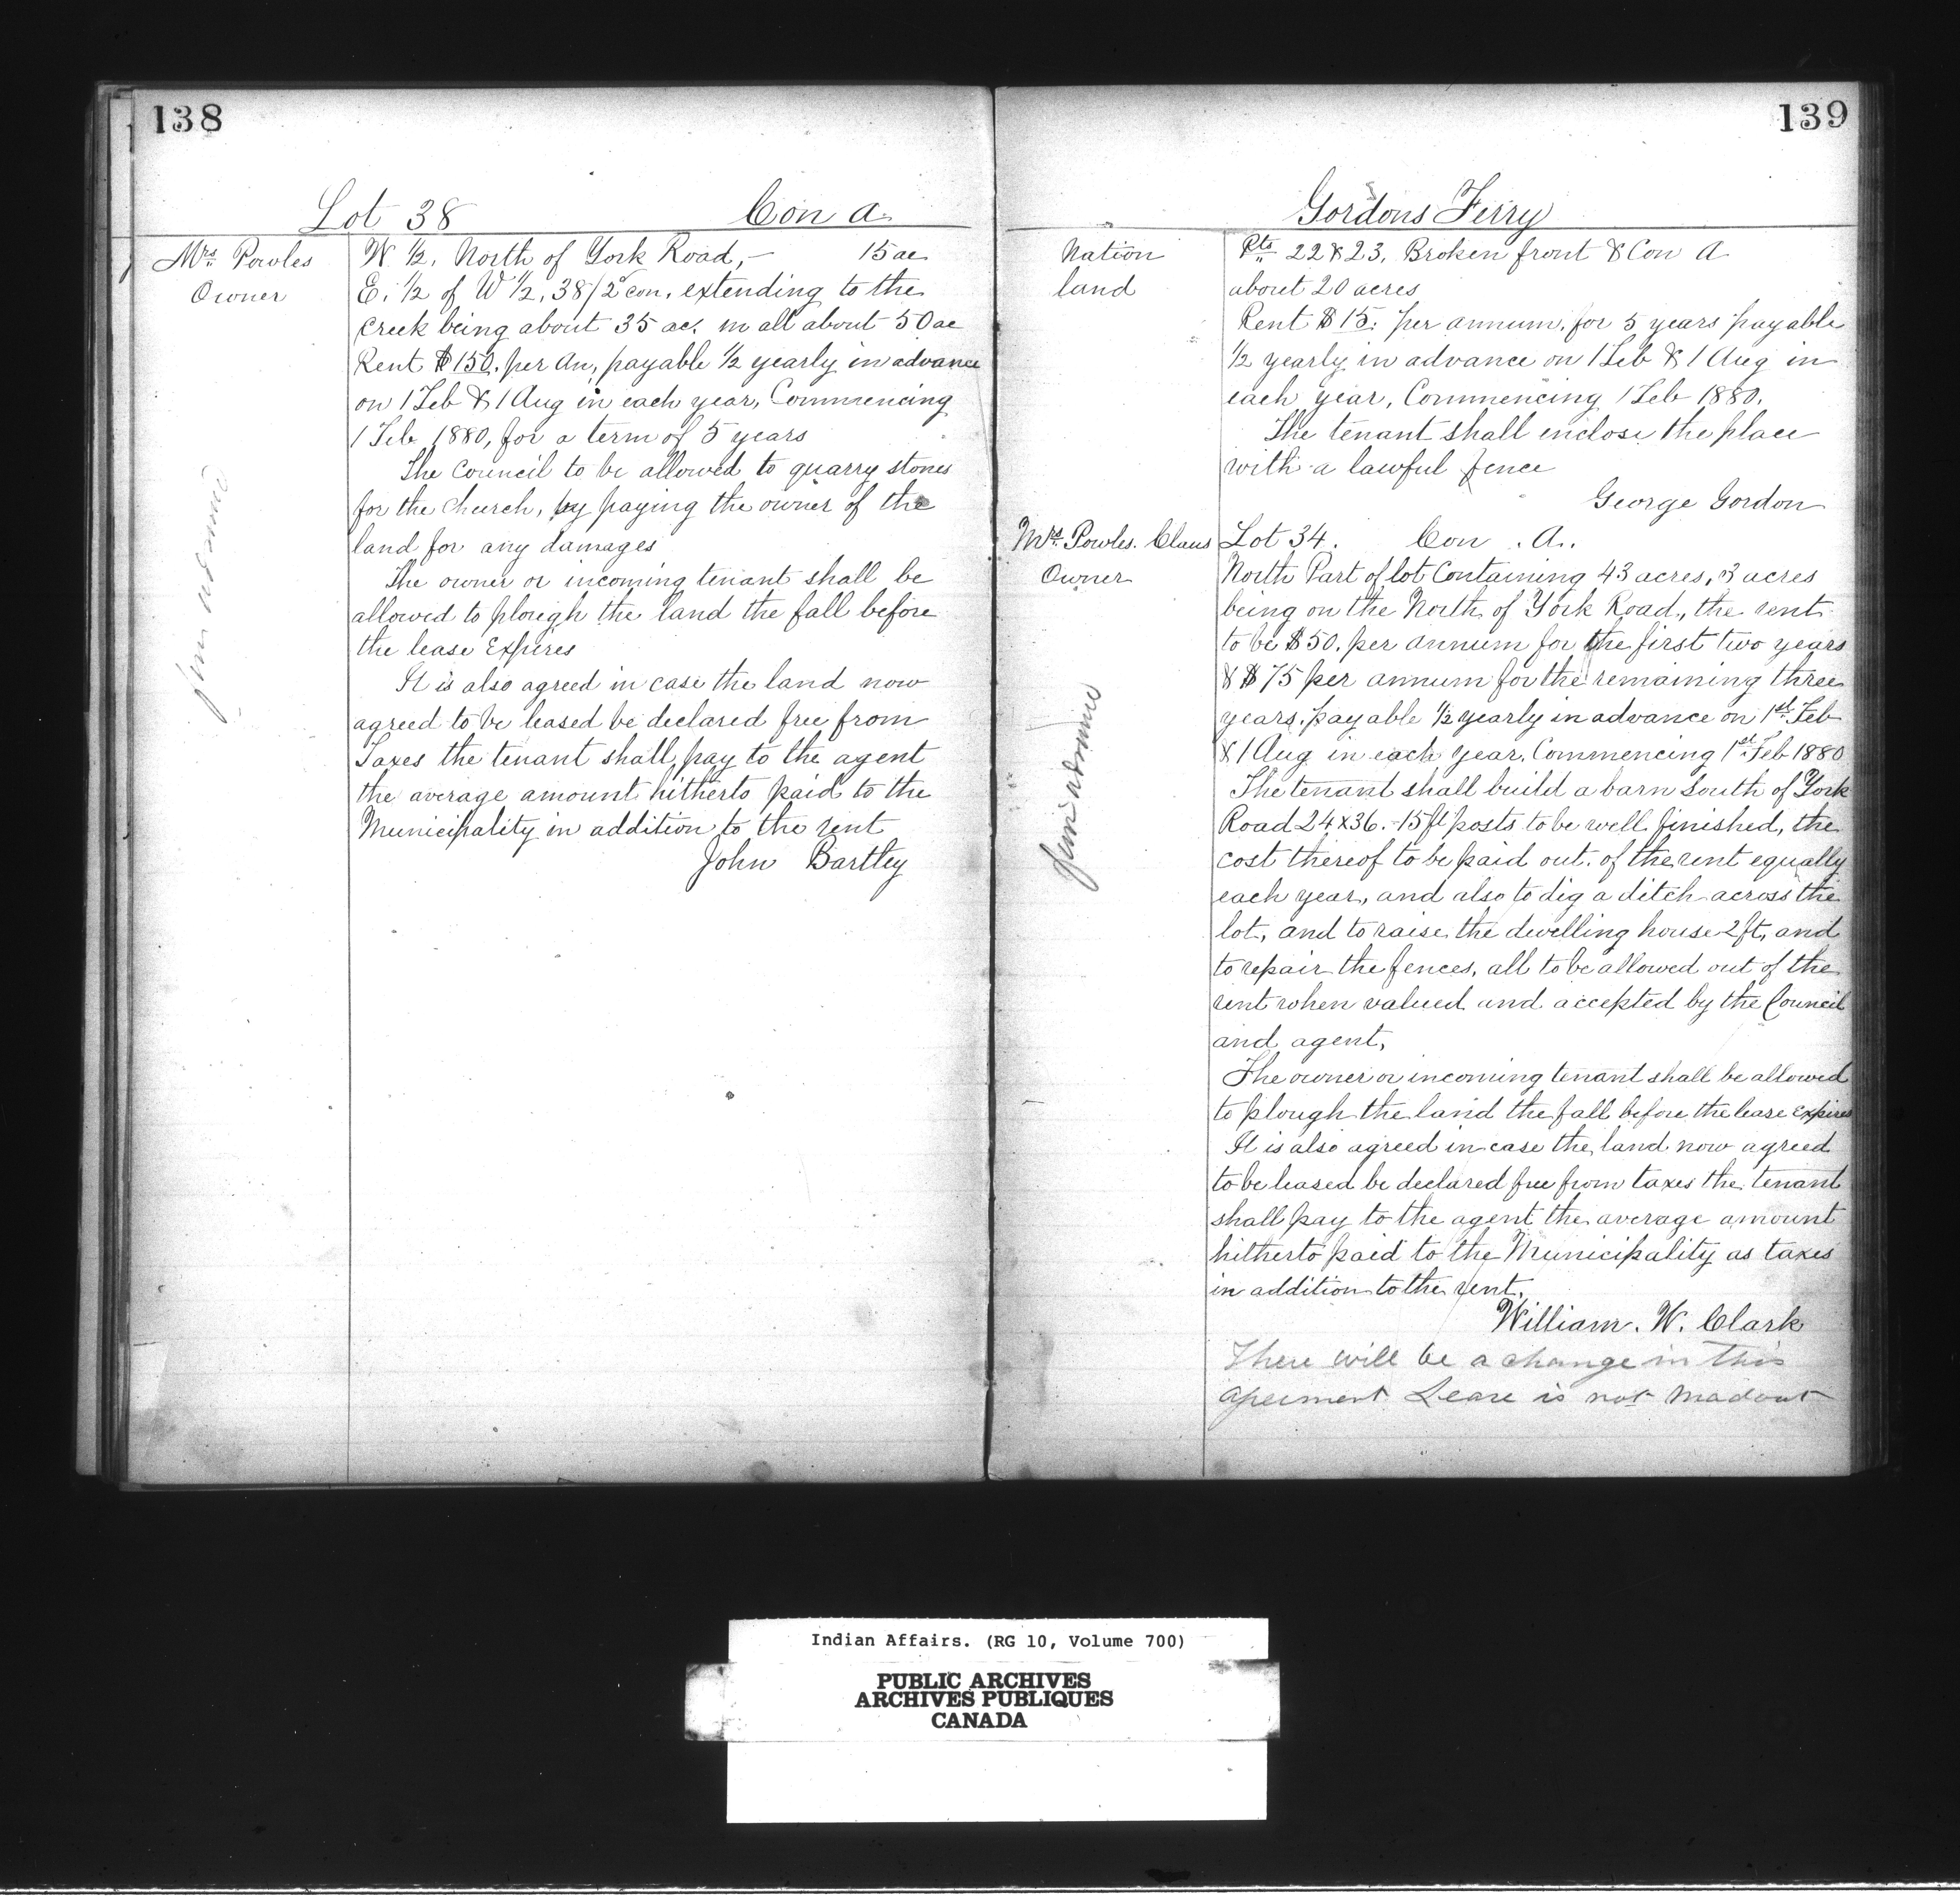 138
Lot 38 Con A.
Mrs. Powles
Owner
W ½, North of York Road, — 15 ac
E. ½ of W ½, 38/2d con, extending to the
creek being about 35 ac, in all about 50 ac
Rent $150. per an, payable ½ yearly in advance
on 1 Feb & 1 Aug in each year, Commencing
1 Feb 1880, for a term of 5 years
The Council to be allowed to quarry stones
for the Church, by paying the owner of the
land for any damages
The owner or incoming tenant shall be
allowed to plough the land the fall before
the lease Expires
It is also agreed in case the land now
agreed to be leased be declared free from
Taxes the tenant shall pay to the agent
the average amount hitherto paid to the
Municipality in addition to the rent
John Bartley
139
Gordons Ferry
Nation
land
Pts 22 & 23, Broken front & Con A
about 20 acres
Rent $15: per annum, for 5 years payable
½ yearly in advance on 1 Feb & 1 Aug in
each year, Commencing 1 Feb 1880.
The tenant shall inclose the place
with a lawful fence
George Gordon
Mrs. Powles. Claus
Owner
Lot 34. Con . A..
North Part of lot Containing 43 acres, 3 acres
being on the North of York Road, the rent
to be $50. per annum for the first two years
& $75 per annum for the remaining three
years, payable ½ yearly in advance on 1st Feb
& 1 Aug in each year. Commencing 1st Feb 1880
The tenant shall build a barn South of York
Road 24x36.-15 ft posts to be well finished, the
cost thereof to be paid out. of the rent equally
each year, and also to dig a ditch across the
lot, and to raise the dwelling house 2 ft, and
to repair the fences, all to be allowed out of the
rent when valued and accepted by the Council
and agent,
The owner or incoming tenant shall be allowed
to plough the land the fall before the lease Expires
It is also agreed in case the land now agreed
to be leased be declared free from taxes the tenant
shall pay to the agent the average amount
hitherto paid to the Municipality as taxes
in addition to the rent.
William. W. Clark
There will be a change in this
Lease is not
Indian Affairs. (RG 10, Volume 700)
PUBLIC ARCHIVES
ARCHIVES PUBLIQUES
CANADA